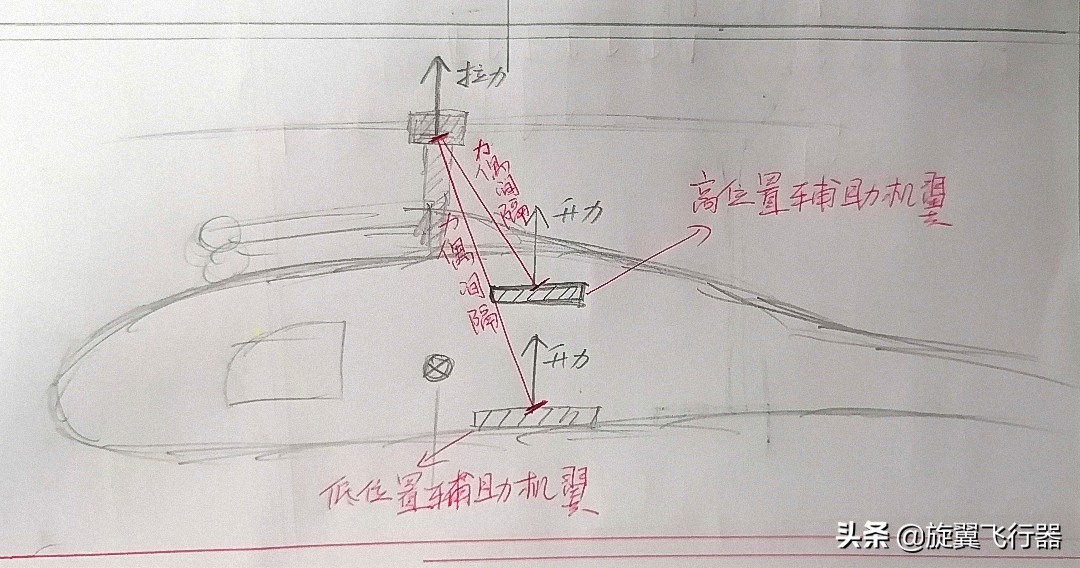 拉力
力偶间隔
升力
高位置辅助机翼
力偶间隔
升力
低位置辅助机翼
头条 @旋翼飞行器